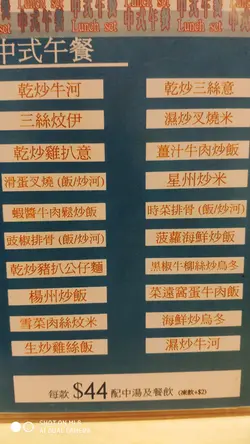 Lunch set Lunch set Lunch set
中式午餐
乾炒牛河
乾炒三絲意
三絲炆伊
濕炒叉燒米
乾炒雞扒意
薑汁牛肉炒飯
滑蛋叉燒 (飯/炒河)
星州炒米
蝦醬牛肉鬆炒飯
時菜排骨 (飯/炒河)
豉椒排骨 (飯/炒河)
菠蘿海鮮炒飯
乾炒豬扒公仔麵
黑椒牛柳絲炒烏冬
楊州炒飯
菜遠窩蛋牛肉飯
雪菜肉絲炆米
海鮮炒烏冬
生炒雞絲飯
濕炒牛河
每款 $44 配中湯及餐飲 (凍飲+$2)
SHOT ON MI 8